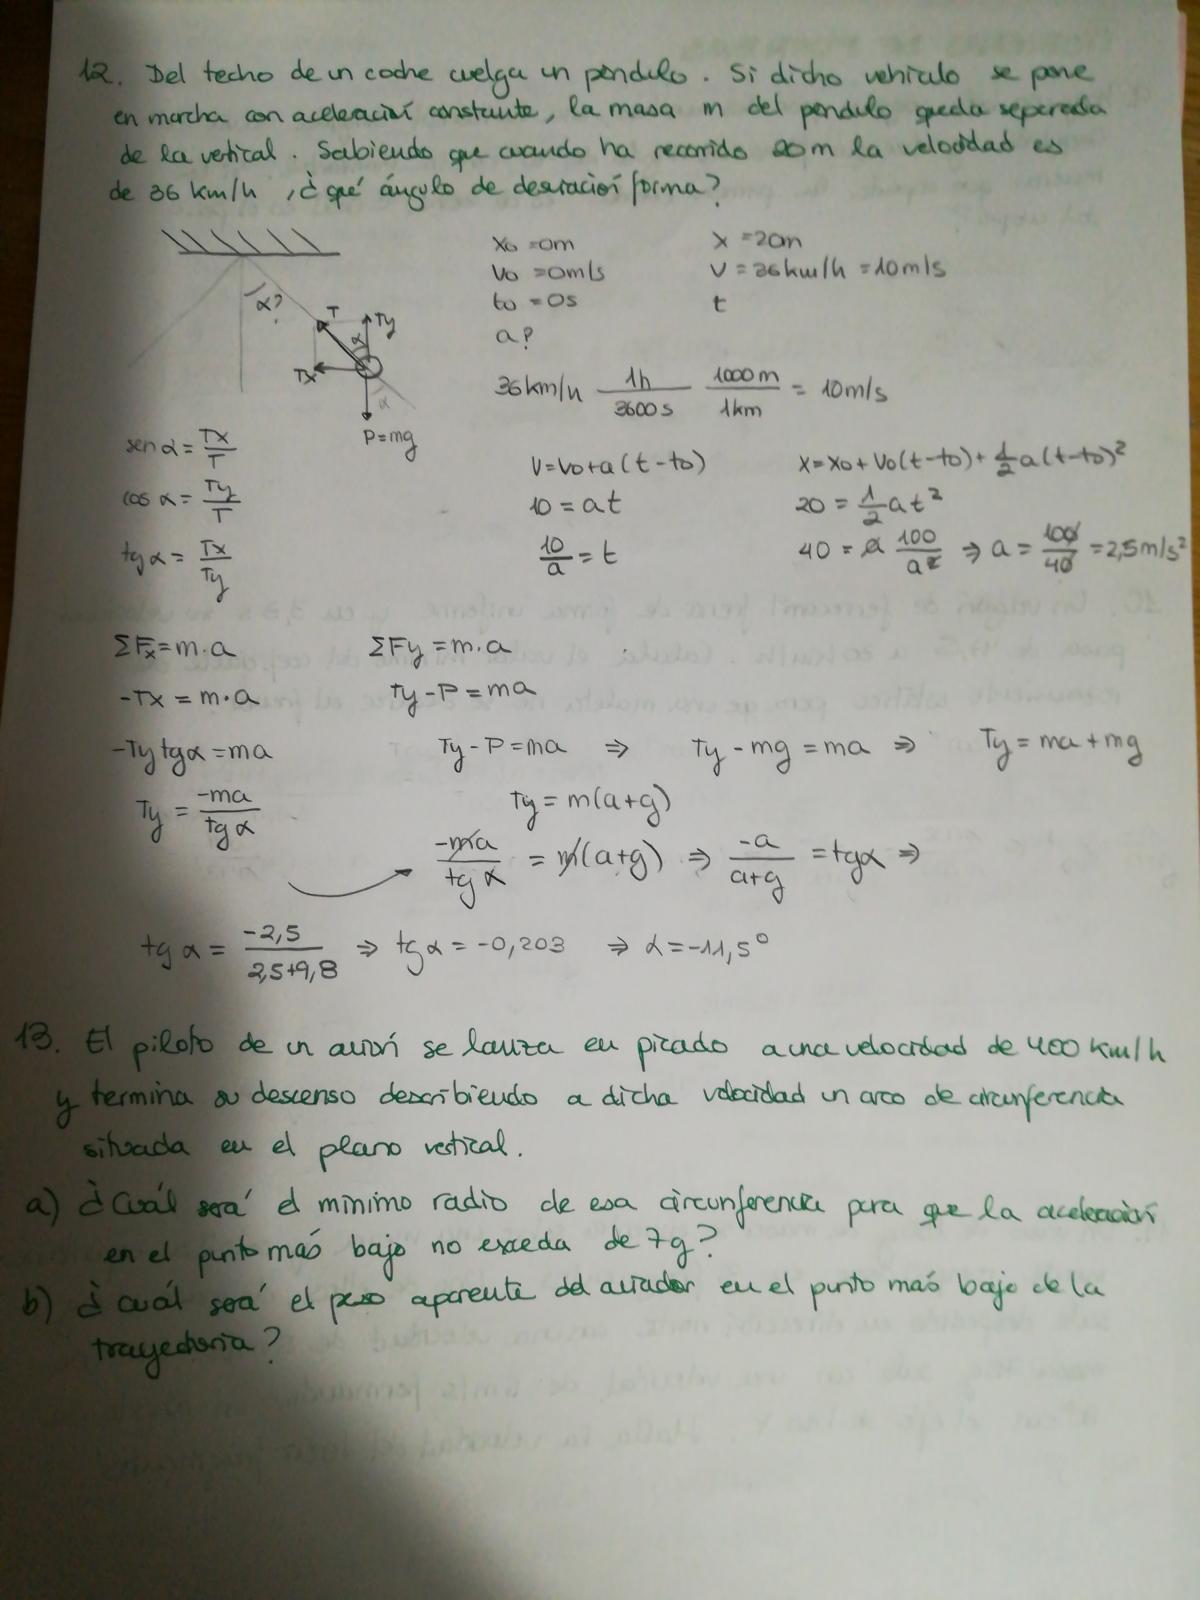 12. Del techo de un coche cuelga un péndulo. Si dicho vehículo se pone
en marcha con aceleración constante, la masa m del péndulo queda separada
de la vertical. Sabiendo que cuando ha recorrido 20m la velocidad es
de 36 km/h, ¿qué ángulo de desviación forma?
x0 = 0m x = 20m
v0 = 0m/s v = 36km/h = 10m/s
t0 = 0s t
a?
α? T Ty α Tx α P=mg
36km/h 1h/3600s 1000m/1km = 10m/s
sen α = Tx/T v=v0+a(t-t0) x=x0+v0(t-t0)+1/2a(t-t0)²
cos α = Ty/T 10 = at 20 = 1/2at²
tg α = Tx/Ty 10/a = t 40 = a 100/a² ⇒ a = 100/40 = 2,5m/s²
ΣFx = m·a ΣFy = m·a
-Tx = m·a Ty-P = ma
-Ty tgα = ma Ty-P = ma ⇒ Ty-mg = ma ⇒ Ty = ma+mg
Ty = -ma/tgα Ty = m(a+g)
-ma/tgα = m(a+g) ⇒ -a/a+g = tgα ⇒
tg α = -2,5/2,5+9,8 ⇒ tg α = -0,203 ⇒ α = -11,5°
13. El piloto de un avión se lanza en picado a una velocidad de 400 km/h
y termina su descenso describiendo a dicha velocidad un arco de circunferencia
situada en el plano vertical.
a) ¿Cuál será el mínimo radio de esa circunferencia para que la aceleración
en el punto más bajo no exceda de 7g?
b) ¿Cuál será el peso aparente del aviador en el punto más bajo de la
trayectoria?